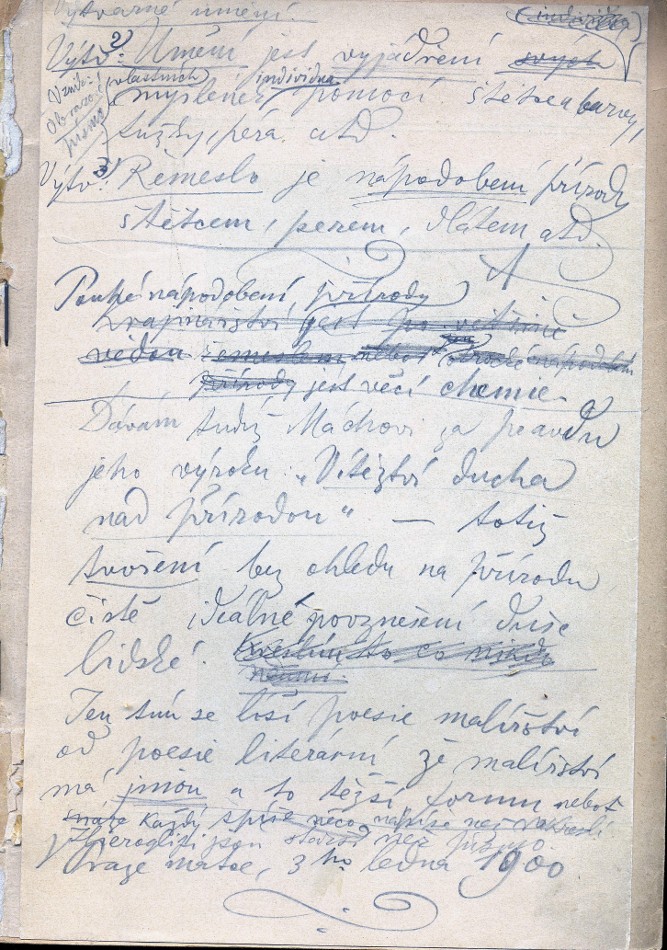 Výtvarné umění.
(individua)
Výtv: 2) Umění jest vyjádření svých
Vznik:
Obrazo
písmo
vlastních individua
myšlenek pomocí štětce a barvy,
tužky, péra atd.
Výtv: 3) Řemeslo je nápodobení přírody
štětcem, perem, dlátem atd.
Pouhé nápodobení přírody
krajinářství jest po většině
vědou řemeslem neboť nápodobení
přírody jest věcí chemie.
Dávám tudíž Máchovi za pravdu
jeho výroku: „Vítězství ducha
nad přírodou“ — totiž
tvoření bez ohledu na přírodu
čistě idealné povznešení duše
lidské.
Ten tím se liší poesie malířství
od poesie literární že malířství
má jinou a to těžší formu neboť
snáze každý spíše něco napíše než nakreslí
Hieroglifi jsou starší než písmo.
Praze matce, 3ho ledna 1900